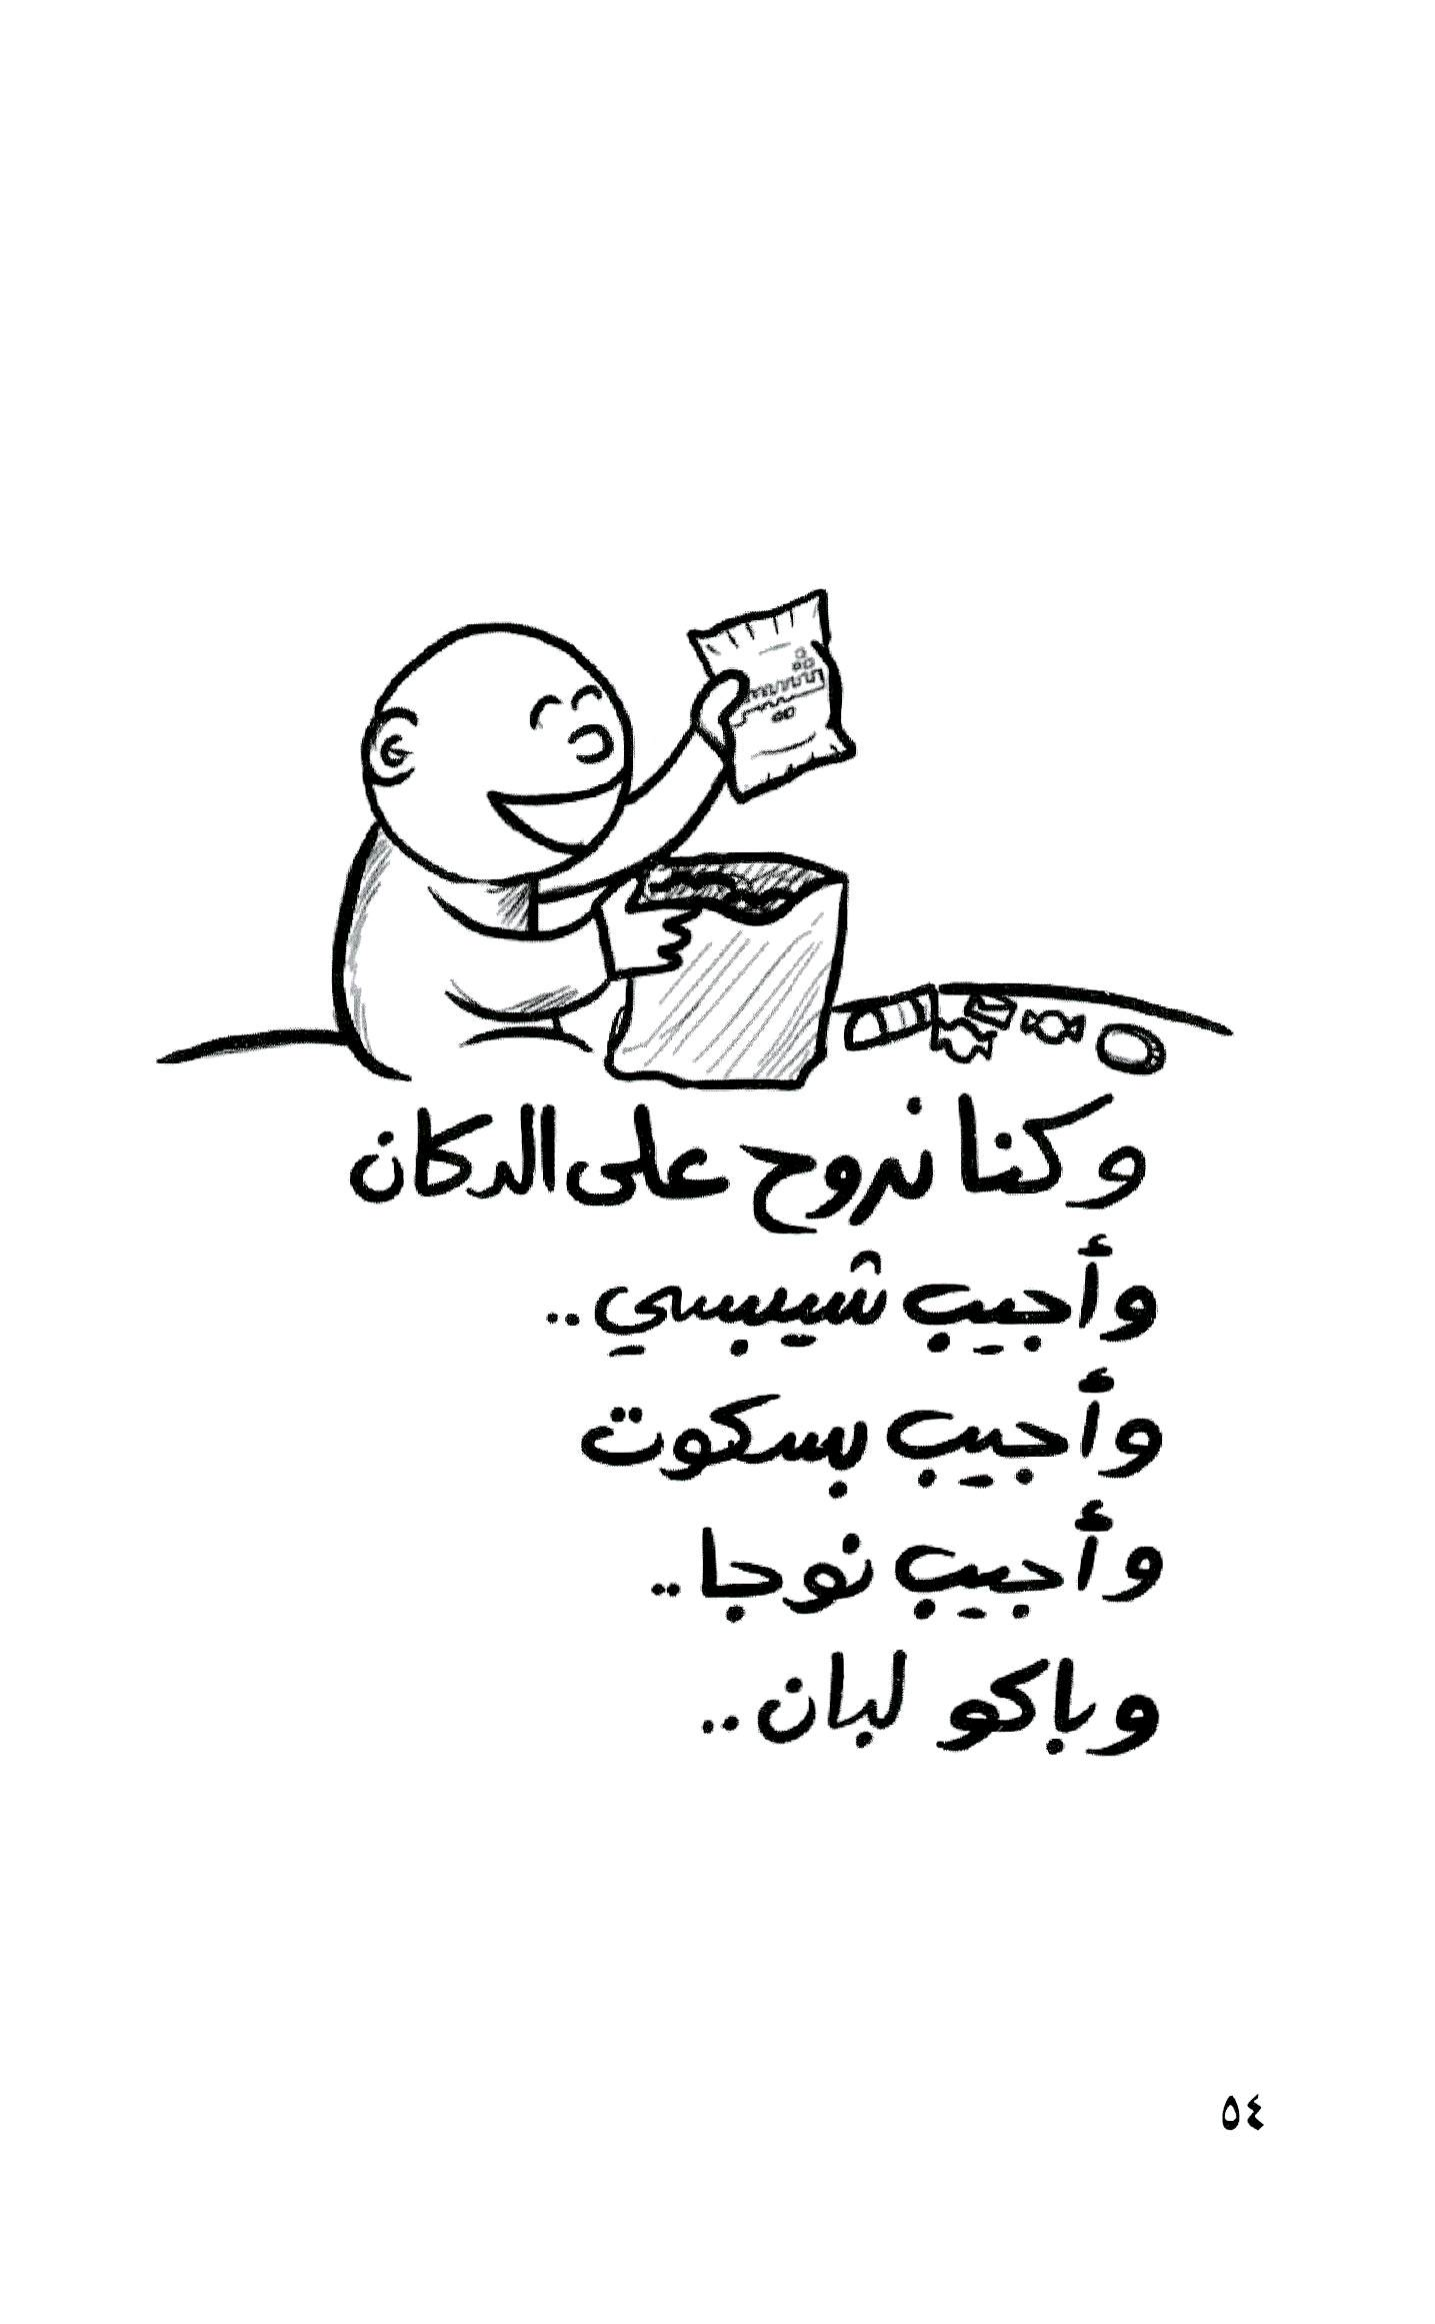 وكنا نروح على الدكان
وأجيب شيبسي..
وأجيب بسكوت
وأجيب نوجا..
وباكو لبان..
٥٤